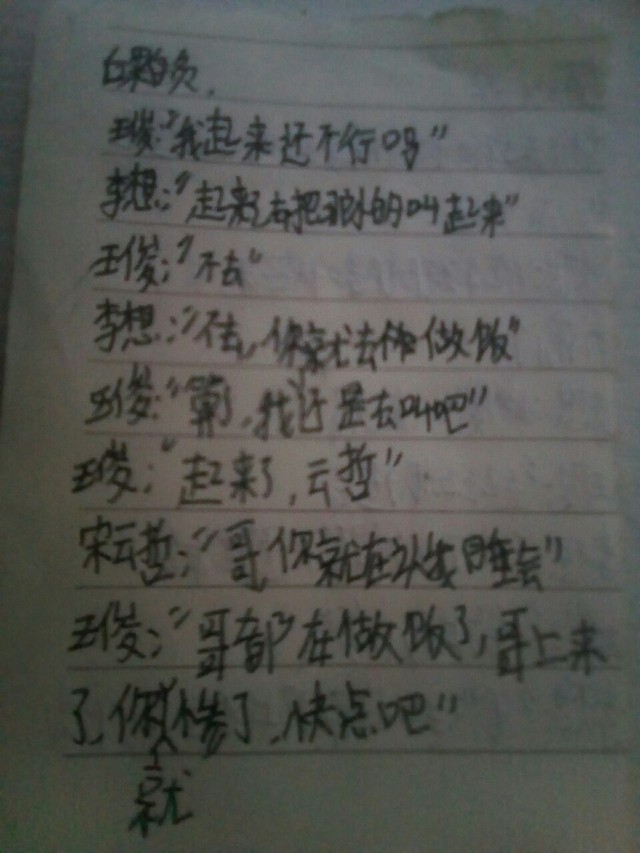 王俊:"我起来还不行吗"
李想:"起来,去把别的叫起来"
王俊:"不去"
李想:"不去,你就去做饭"
王俊:"算了,我还是去叫吧"
王俊:"起来了,云哲"
宋云哲:"哥,你就在让我睡会"
王俊:"哥都在做饭了,哥上来
了,你就惨了,快点吧"